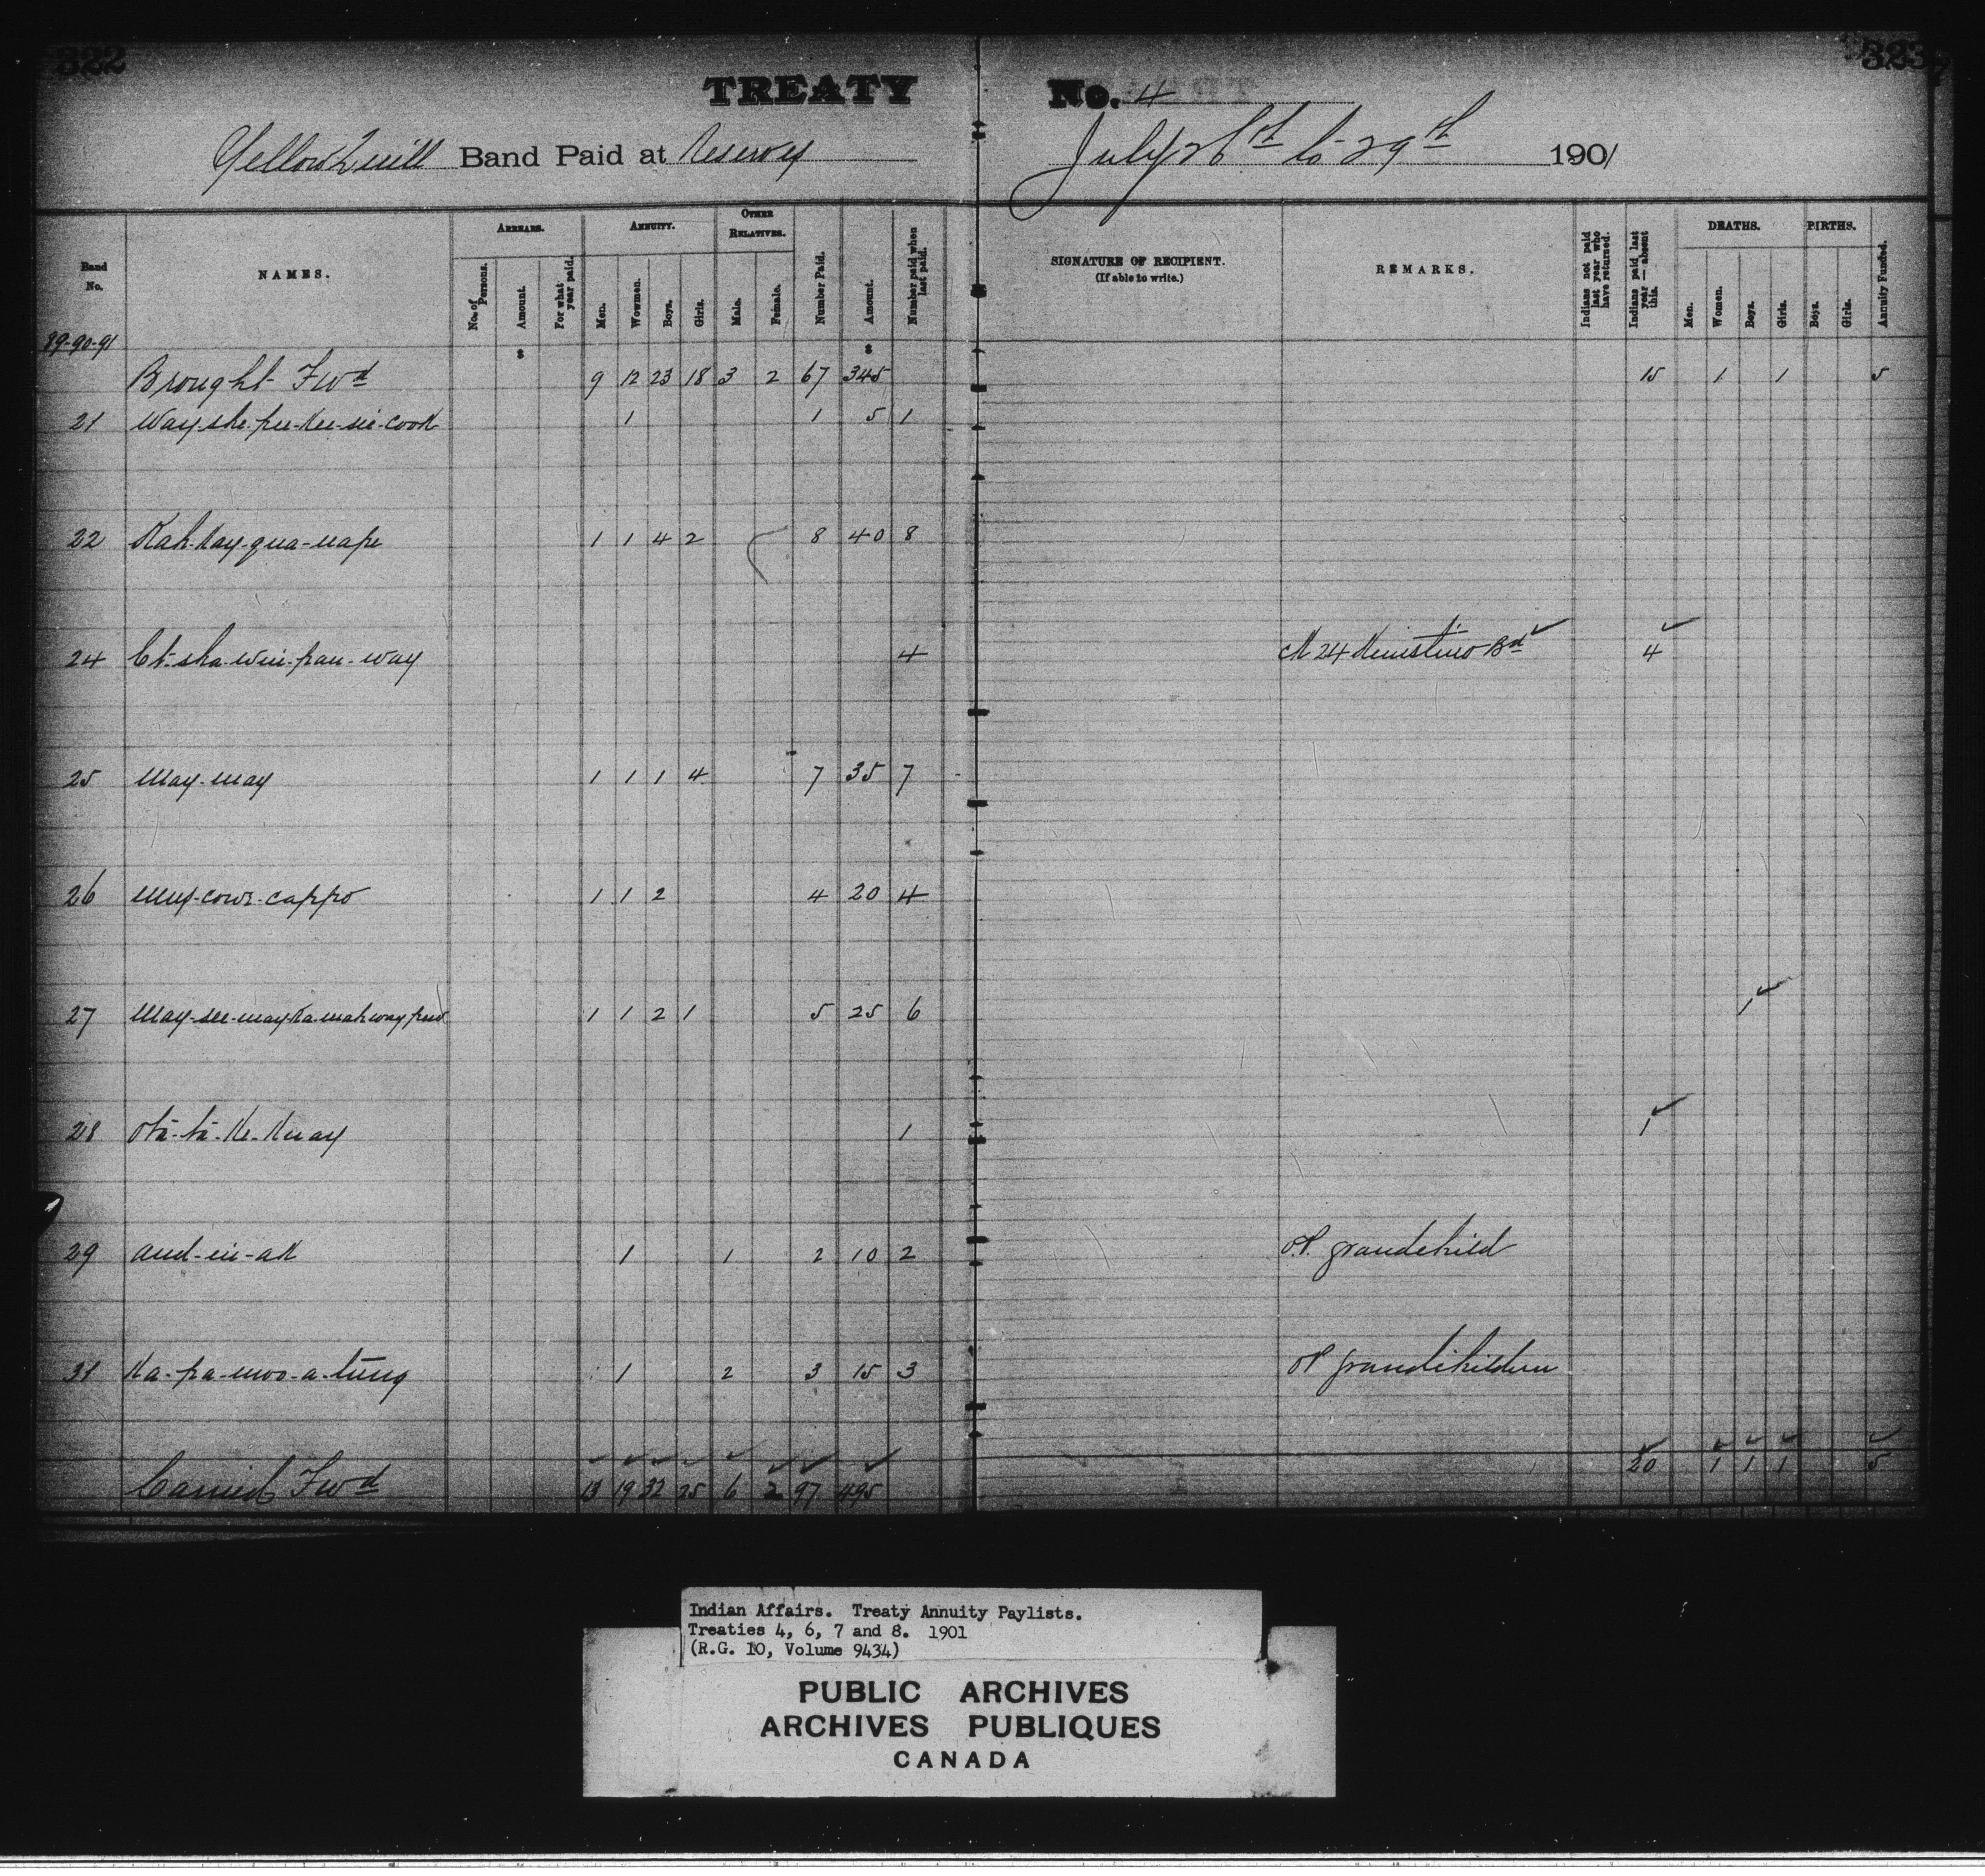 322 323
TREATY No. 4
Yellow Quill Band Paid at Reserve July 26th to 29th 1901
Band No.
NAMES.
ARREARS.
No. of Persons.
Amount.
For what year paid.
ANNUITY.
Men.
Wowmen.
Boys.
Girls.
OTHER RELATIVES.
Male.
Female.
Number Paid.
Amount.
Number paid when last paid.
SIGNATURE OF RECIPIENT.
(If able to write.)
REMARKS.
Indians not paid last year who have returned.
Indians paid last year — absent this.
DEATHS.
Men.
Women.
Boys.
Girls.
BIRTHS.
Boys.
Girls.
Annuity Funded.
89-90-91
$ $
Brought Fwd 9 12 23 18 3 2 67 345 15 1 1 5
21 Way-she-pee-kee-sie-cook 1 1 5 1
22 Kah-kay-qua-nape 1 1 4 2 8 40 8
24 4 24 Kinistino Bd 4
25 May-may 1 1 1 4 7 35 7
26 Mus-cows-cappo 1 1 2 4 20 4
27 1 1 2 1 5 25 6 1
28 Ota-ta-ke-kuay 1 1
29 And-in-ak 1 1 2 10 2 O.P. grandchild
31 Ka-pa-moo-a-tung 1 2 3 15 3 OP grandchildren
Carried Fwd 13 19 32 25 6 2 97 495 20 1 1 1 5
Indian Affairs. Treaty Annuity Paylists.
Treaties 4, 6, 7 and 8. 1901
(R.G. 10, Volume 9434)
PUBLIC ARCHIVES
ARCHIVES PUBLIQUES
CANADA